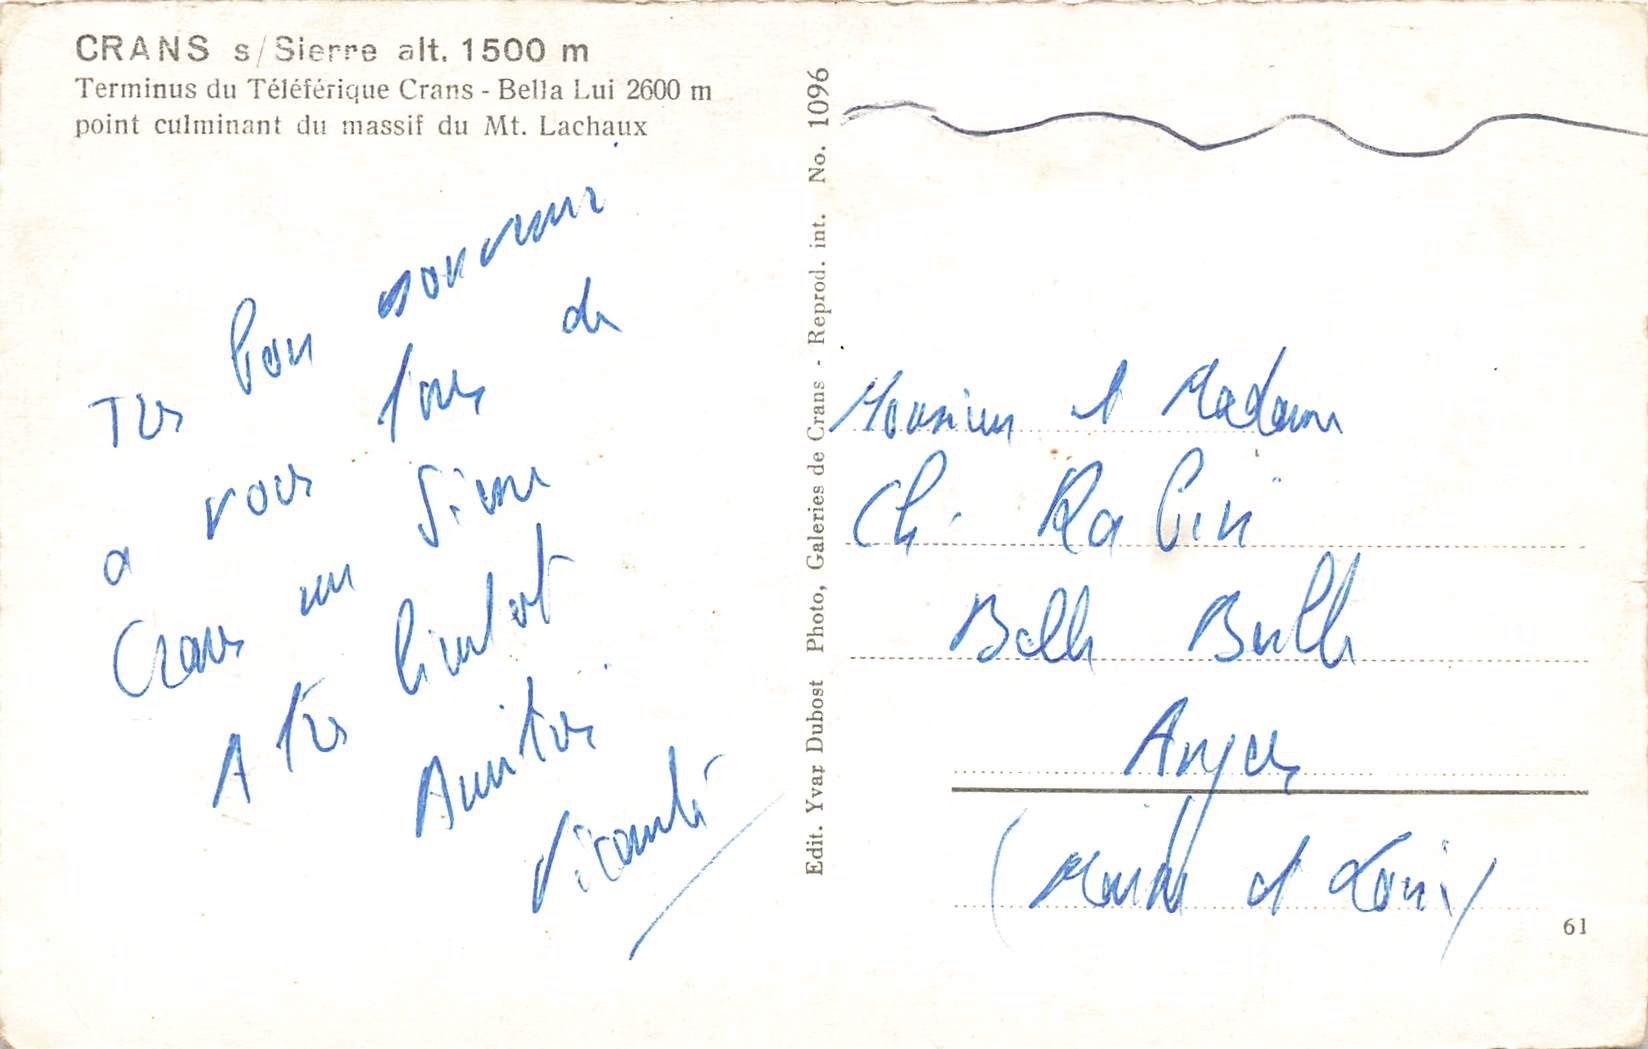 CRANS s/Sierre alt. 1500 m
Terminus du Téléférique Crans - Bella Lui 2600 m
point culminant du massif du Mt. Lachaux
Très bon souvenir
à vous tous de
Crans sur Sierre
A très bientôt
Amitiés
Edit. Yvar Dubost Photo, Galeries de Crans - Reprod. int. No. 1096
Monsieur et Madame
Ch. Rabin
Belle Beille
Angers
(Maine et Loire)
61